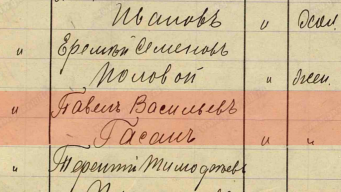 Ивановъ " Жел.
" Еремѣй Семеновъ
Половой " Жел.
" Павелъ Васильевъ
Гасанъ " "
" Терентій Тимофѣевъ